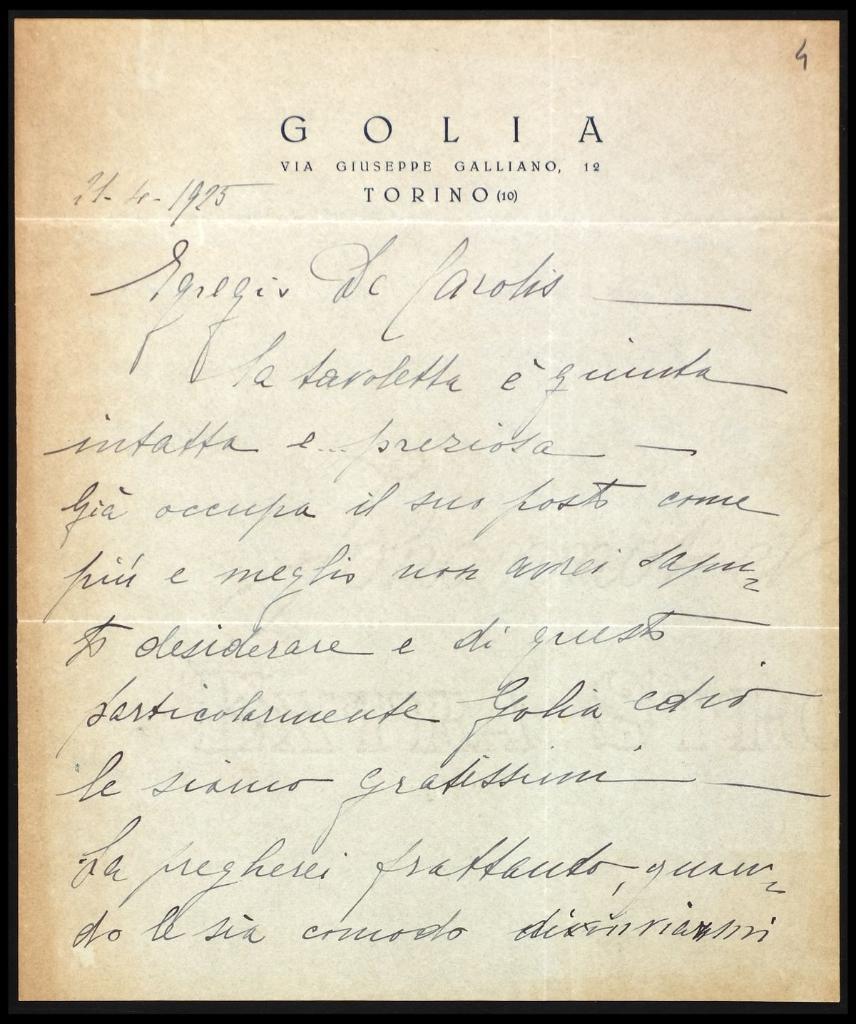 4
GOLIA
VIA GIUSEPPE GALLIANO, 12
TORINO (10)
21-4-1925
Egregio De Carolis
la tavoletta è giunta
intatta e... preziosa —
Già occupa il suo posto come
più e meglio non avrei sapu=
to desiderare e di questo
particolarmente Golia ed io
le siamo gratissimi —
La pregherei frattanto, quan=
do le sia comodo di inviarmi